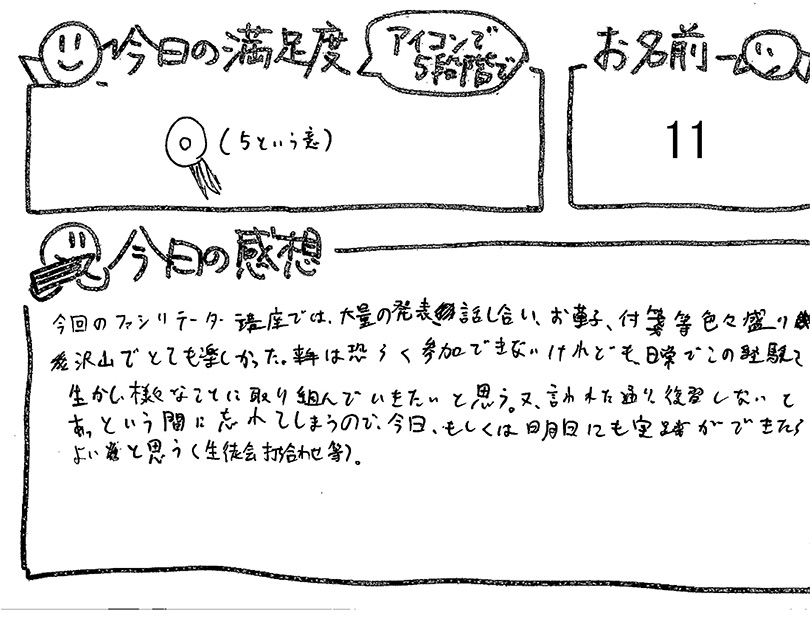 今日の満足度
アイコンで
5段階で
お名前
11
(5という意)
今日の感想
今回のファシリテーター講座では、大量の発表 話し合い、お菓子、付箋等色々盛り
沢山でとても楽しかった。 は恐らく参加できないけれども、日常でこの経験
生かし様々なことに取り組んでいきたいと思う。又、言われた通り復習しないと
あっという間に忘れてしまうので、今日、もしくは明日にも実践ができたら
よいと思う(生徒会打合わせ等)。